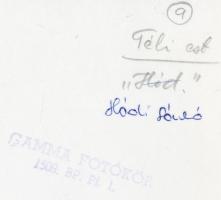 9
Téli est
"Hód."
Hódi
GAMMA FOTÓKÖR
1509. BP. Pf. 1.